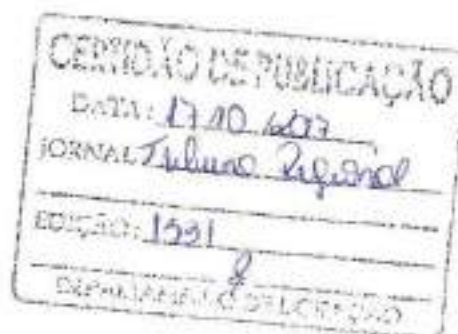 CERTIDÃO DE PUBLICAÇÃO
DATA: 17 10 2017
JORNAL Tribuna Regional
EDIÇÃO: 1991
DEPARTAMENTO DE LICITAÇÃO